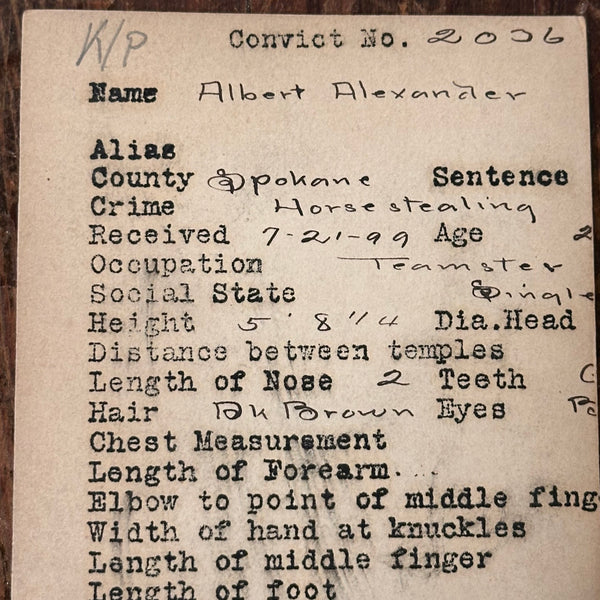 K/P Convict No. 2036
Name Albert Alexander
Alias
County Spokane Sentence
Crime Horse stealing
Received 7-21-99 Age 2
Occupation Teamster
Social State Single
Height 5' 8"1/4 Dia.Head
Distance between temples
Length of Nose 2 Teeth
Hair Dk Brown Eyes
Chest Measurement
Length of Forearm.
Elbow to point of middle fing
Width of hand at knuckles
Length of middle finger
Length of foot